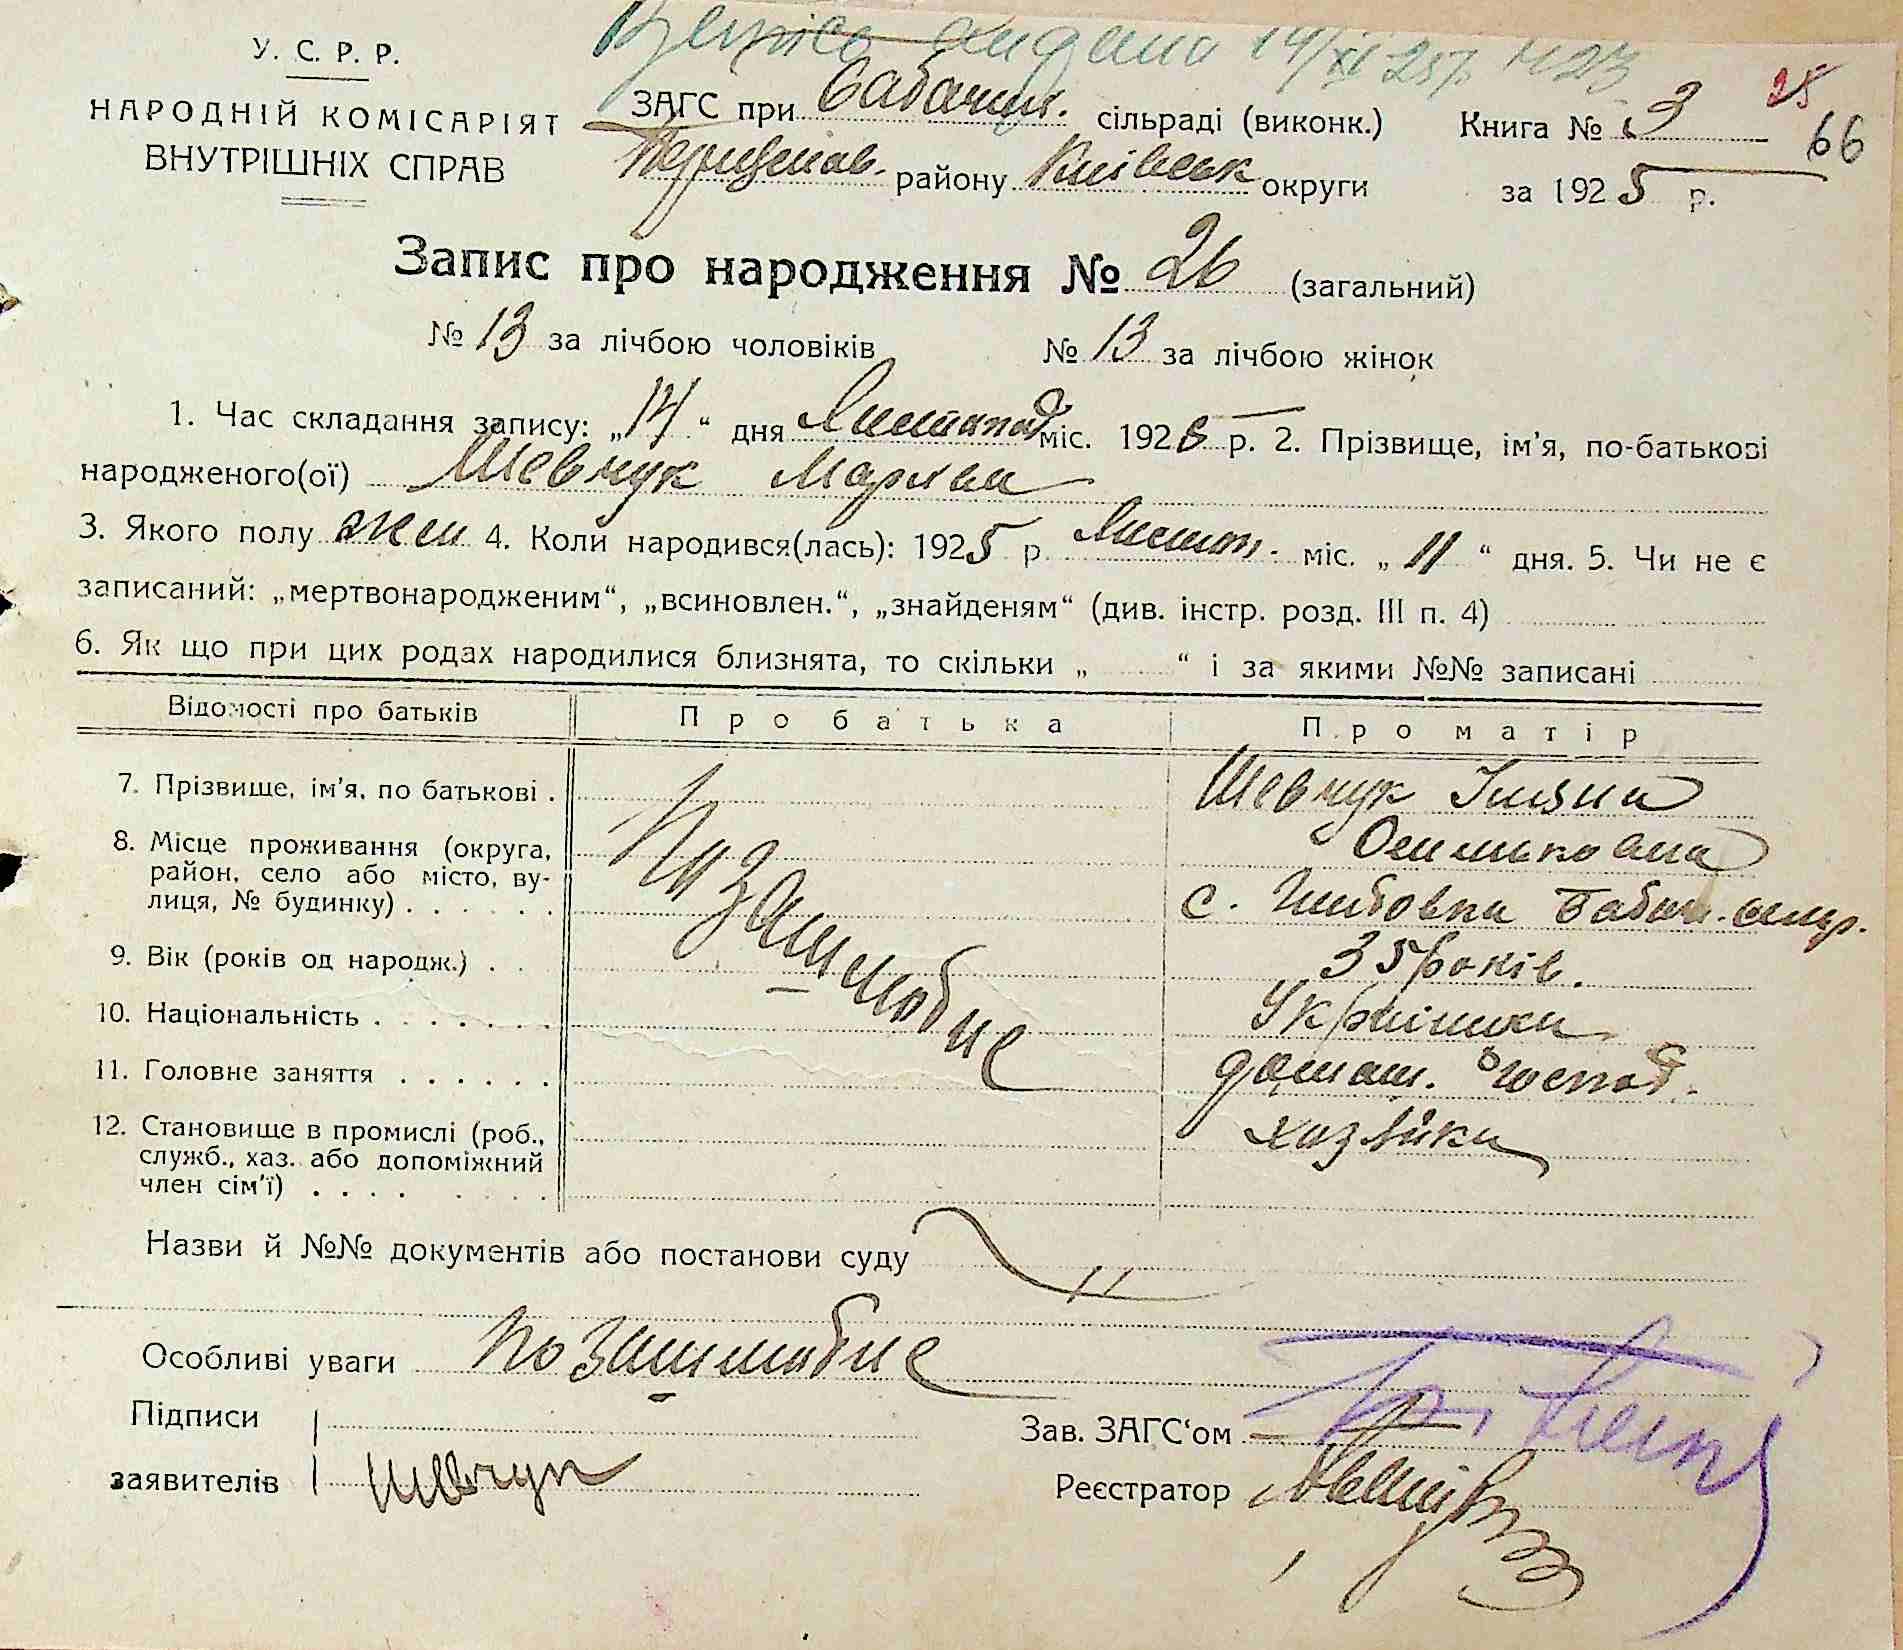 видано 14/XI 25 р. № 23
У. С. Р. Р.
НАРОДНІЙ КОМІСАРІЯТ
ВНУТРІШНІХ СПРАВ
ЗАГС при сільраді (виконк.)
району Київськ округи
Книга № 3
25
66
за 1925 р.
Запис про народження № 26 (загальний)
№ 13 за лічбою чоловіків № 13 за лічбою жінок
1. Час складання запису: „14“ дня Листопад міс. 1925 р. 2. Прізвище, ім'я, по-батькові
народженого(ої) Шевчук
3. Якого полу жін 4. Коли народився(лась): 1925 р. Листоп. міс. „11“ дня. 5. Чи не є
записаний: „мертвонародженим“, „всиновлен.“, „знайденям“ (див. інстр. розд. III п. 4)
6. Як що при цих родах народилися близнята, то скільки „ “ і за якими №№ записані
Відомості про батьків Про батька Про матір
7. Прізвище, ім'я, по батькові . Шевчук
8. Місце проживання (округа,
район, село або місто, ву-
лиця, № будинку) . . . . . . с.
9. Вік (років од народж.) . . 35 років.
10. Національність . . . . . . . Українка
11. Головне заняття . . . . . . домаш. господ.
12. Становище в промислі (роб.,
служб., хаз. або допоміжний
член сім'ї) . . . . . . . . хазяйка
позашлюбне
Назви й №№ документів або постанови суду
Особливі уваги позашлюбне
Підписи
заявителів Шевчук
Зав. ЗАГС‘ом
Реєстратор